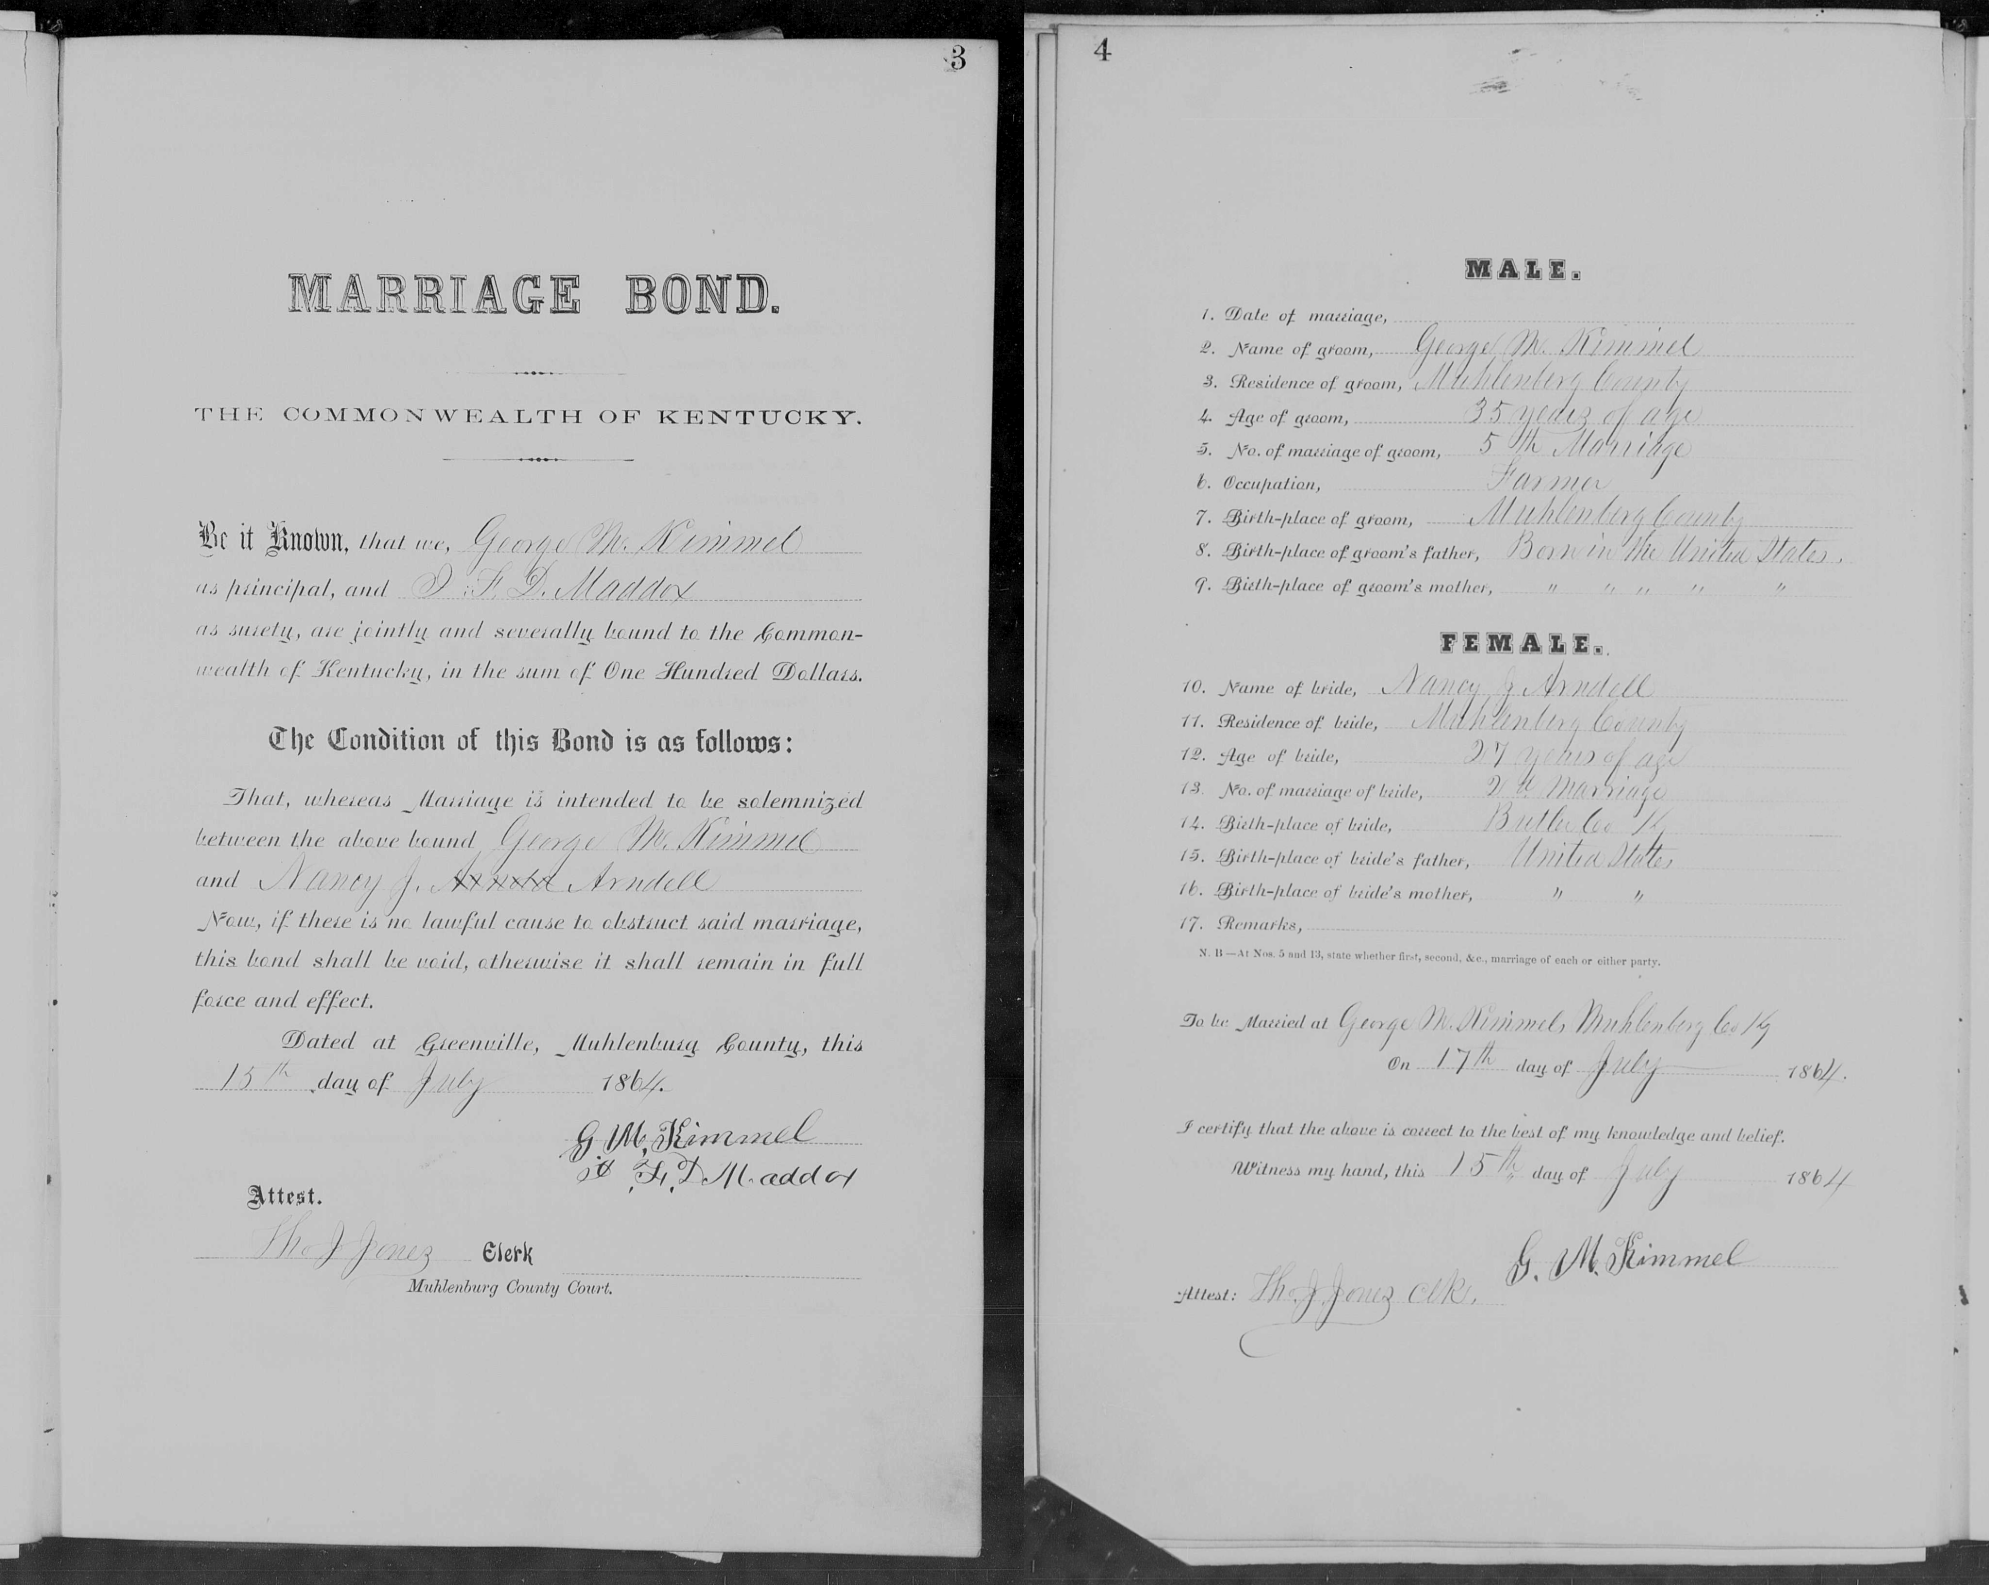 3
MARRIAGE BOND.
THE COMMONWEALTH OF KENTUCKY.
Be it Known, that we, George M. Kimmel
as principal, and F. D. Maddox
as surety, are jointly and severally bound to the Common-
wealth of Kentucky, in the sum of One Hundred Dollars.
The Condition of this Bond is as follows:
That, whereas Marriage is intended to be solemnized
between the above bound George M. Kimmel
and Nancy J. Arnold Arndell
Now, if there is no lawful cause to obstruct said marriage,
this bond shall be void, otherwise it shall remain in full
force and effect.
Dated at Greenville, Muhlenburg County, this
15th day of July 1864.
G M. Kimmel
F. D Maddox
Attest.
Tho J Jones Clerk
Muhlenburg County Court.
4
MALE.
1. Date of marriage,
2. Name of groom, George M. Kimmel
3. Residence of groom, Muhlenberg County
4. Age of groom, 35 years of age
5. No. of marriage of groom, 5th Marriage
6. Occupation, Farmer
7. Birth-place of groom, Muhlenberg County
8. Birth-place of groom's father, Born in the United States.
9. Birth-place of groom's mother, " " " " "
FEMALE.
10. Name of bride, Nancy J Arndell
11. Residence of bride, Muhlenberg County
12. Age of bride, 27 years of age
13. No. of marriage of bride, 2d Marriage
14. Birth-place of bride, Butler Co Ky
15. Birth-place of bride's father, United States
16. Birth-place of bride's mother, " "
17. Remarks,
N. B—At Nos. 5 and 13, state whether first, second, &c., marriage of each or either party.
To be Married at George M. Kimmels Muhlenberg Co Ky
On 17th day of July 1864.
I certify that the above is correct to the best of my knowledge and belief.
Witness my hand, this 15th day of July 1864
G. M. Kimmel
Attest: Tho. J. Jones Clk.